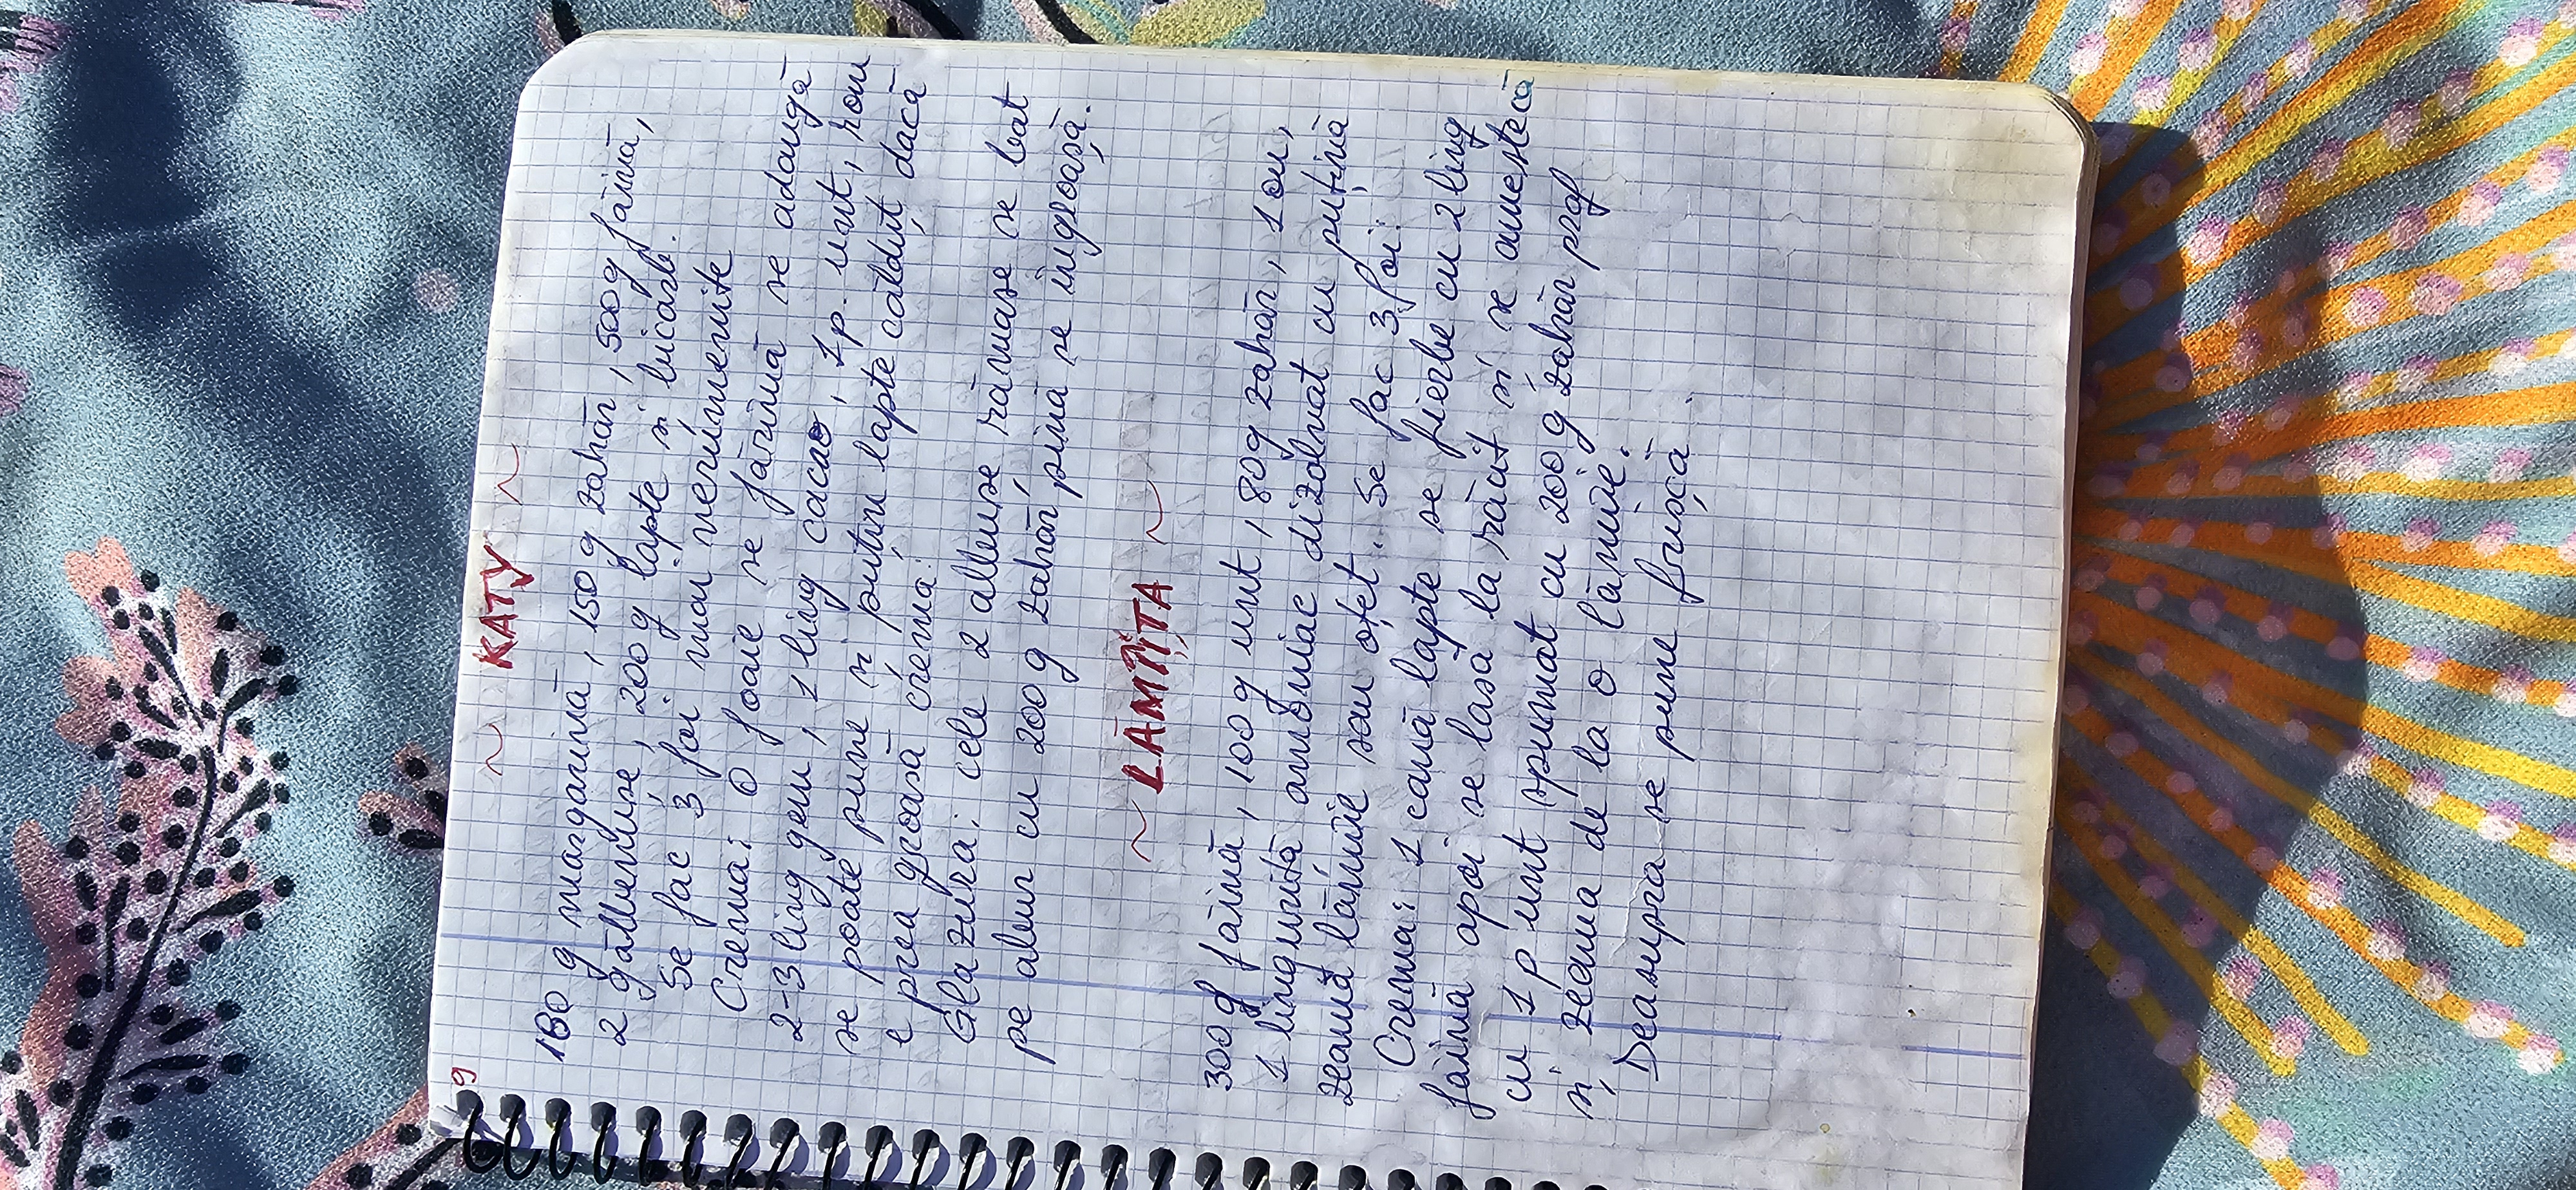 9
~ KATY ~
180 g margarină, 150 g zahăr, 500g făină,
2 gălbenușe, 200 g lapte și bicarb.
Se fac 3 foi mai nerumenite
Crema: O foaie se fărîmă se adaugă
2-3 ling gem, 1 ling cacao, 1p. unt, rom
se poate pune și puțin lapte călduț dacă
e prea groasă crema.
Glazura: cele 2 albușe rămase se bat
pe abur cu 200 g zahăr pînă se îngroașă.
~ LĂMÎIȚA ~
300 g făină, 100 g unt, 80g zahăr, 1 ou,
1 linguriță amoniac dizolvat cu puțină
zeamă lămîie sau oțet. Se fac 3 foi.
Crema: 1 cană lapte se fierbe cu 2 ling
făină apoi se lasă la răcit și se amestecă
cu 1 p unt spumat cu 200 g zahăr praf
și zeama de la o lămîie.
Deasupra se pune frișcă.